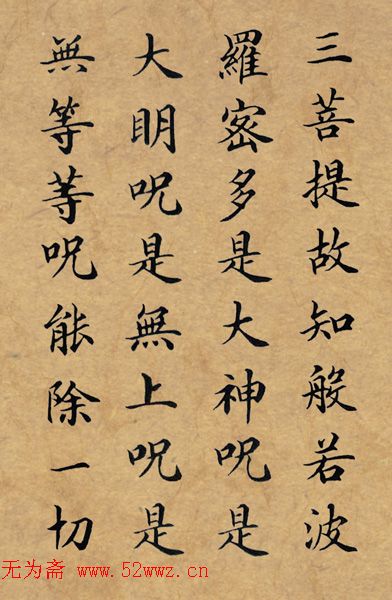 三菩提故知般若波
羅密多是大神呪是
大明呪是無上呪是
無等等呪能除一切
无为斋 www.52wwz.cn